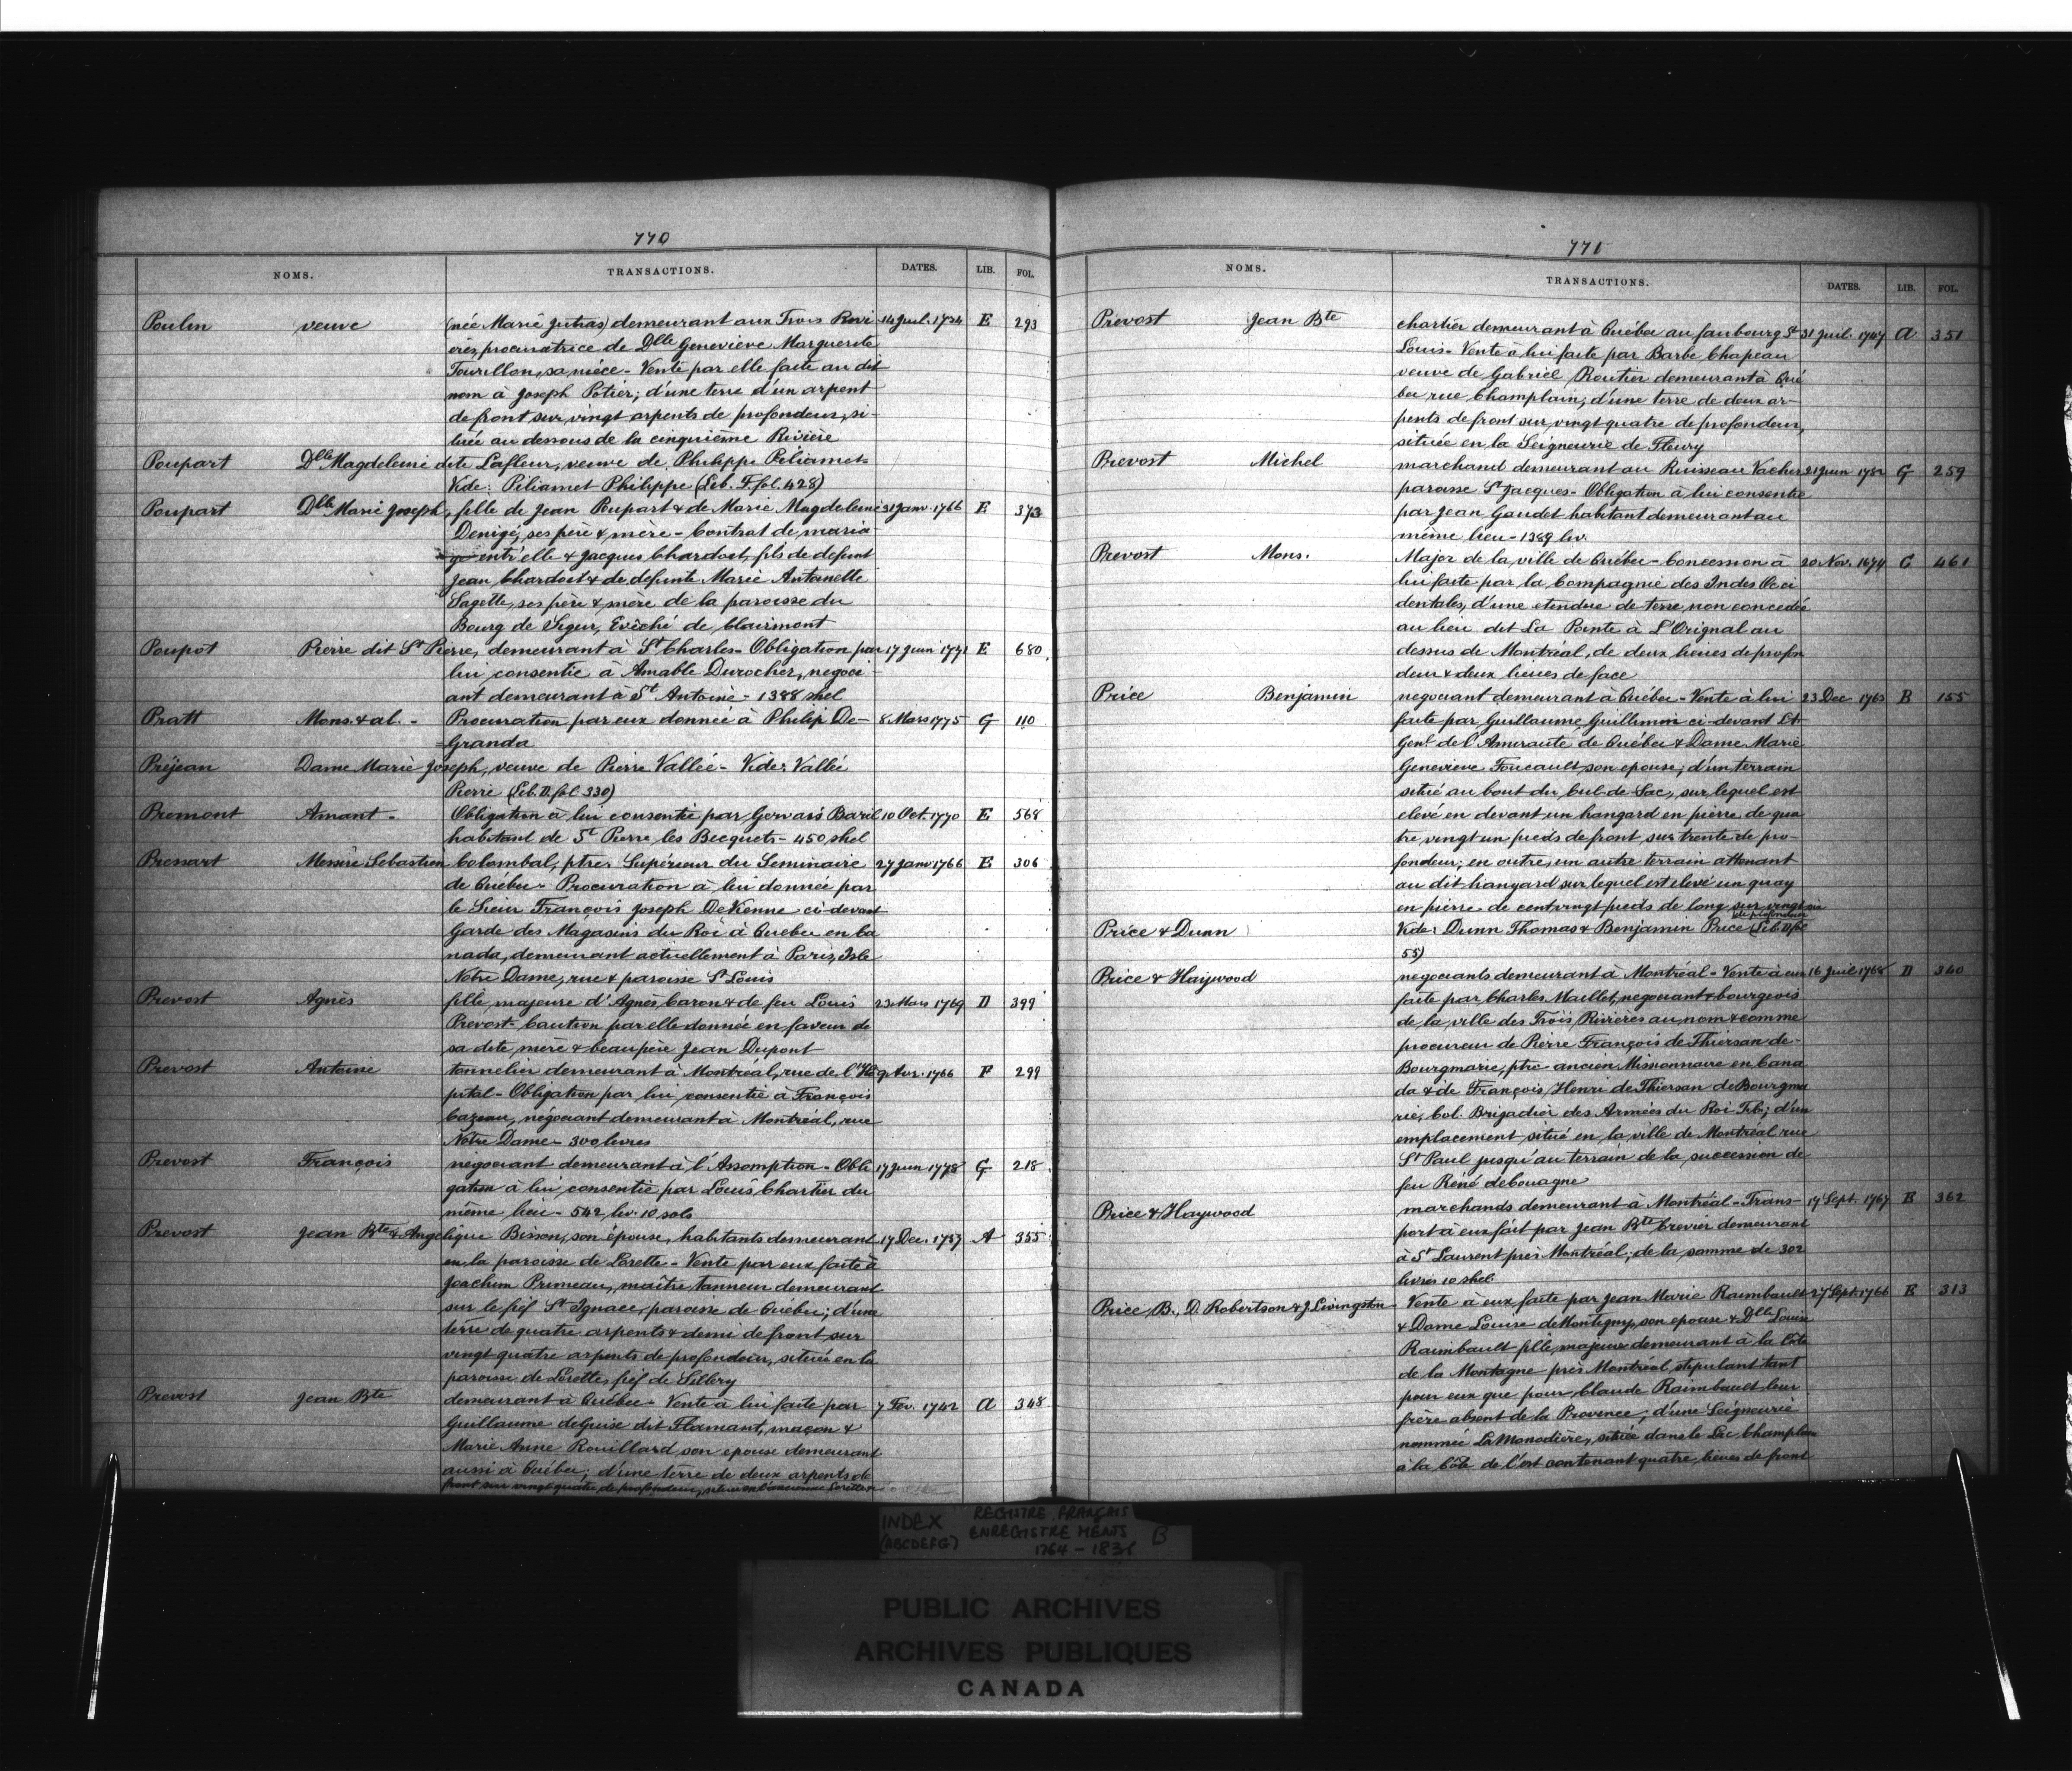 770
NOMS. TRANSACTIONS. DATES. LIB. FOL.
Poulin veuve (née Marie Jutras) demeurant aux Trois Rivi 14 Juil. 1724 E 293
ères, procuratrice de Dlle Genevieve Marguerite
Tourillon, sa nièce - Vente par elle faite au dit
nom à Joseph Potier; d'une terre d'un arpent
de front sur vingt arpents de profondeur, si-
tuée au dessous de la cinquième Rivière
Poupart Dlle Magdeleine dite Lafleur, veuve de Philippe Piliamet-
Vide: Piliamet Philippe (Lib. F. fol. 428)
Poupart Dlle Marie Joseph, fille de Jean Poupart & de Marie Magdeleine 31 Janv. 1766 E 373
Denigé, ses père & mère - Contrat de maria
ge entr'elle & Jacques Chardoet, fils de defunt
Jean Chardoet & de defunte Marie Antoinette
Sagette, ses père & mère de la paroisse du
Bourg de Segur, Evêché de Clairmont
Poupot Pierre dit St Pierre, demeurant à St Charles - Obligation par 17 Juin 1771 E 680
lui consentie à Amable Durocher, negoci-
ant demeurant à St Antoine - 1388 shel
Pratt Mons. & al. - Procuration par eux donnée à Philip De- 8 Mars 1775 G 110
=Granda
Préjean Dame Marie Joseph, veuve de Pierre Vallée - Vide: Vallée
Pierre (Lib. D. fol. 330)
Premont Amant - Obligation à lui consentie par Gervais Baril 10 Oct. 1770 E 568
habitant de St Pierre les Becquets - 450 shel
Pressart Messire Sebastien Colombal, ptre, Supérieur du Seminaire 27 Janv 1766 E 306
de Québec - Procuration à lui donnée par
le Sieur François Joseph DeVienne ci-devant
Garde des Magasins du Roi à Quebec en Ca
nada, demeurant actuellement à Paris, Isle
Notre Dame, rue & paroisse St Louis
Prevost Agnès fille majeure d'Agnès Caron & de feu Louis 23 Mars 1769 D 399
Prevost - Caution par elle donnée en faveur de
sa dite mère & beaupère Jean Dupont
Prevost Antoine tonnelier demeurant à Montréal, rue de l'Hô 9 Avr. 1766 F 299
pital - Obligation par lui consentie à François
Cazeau, négociant demeurant à Montréal, rue
Notre Dame - 300 livres
Prevost François négociant demeurant à l'Assomption - Obli 17 Juin 1778 G 218
gation à lui consentie par Louis Chartier du
même lieu - 542 liv. 10 sols
Prevost Jean Bte & Angelique Bisson, son épouse, habitants demeurant 17 Dec. 1757 A 355
en la paroisse de Lorette - Vente par eux faite à
Joachim Primeau, maître tanneur demeurant
sur le fief St Ignace, paroisse de Québec; d'une
terre de quatre arpents & demi de front sur
vingt quatre arpents de profondeur, située en la
paroisse de Lorette, fief de Sillery
Prevost Jean Bte demeurant à Québec - Vente à lui faite par 7 Fév. 1742 A 348
Guillaume deGuise dit Flamant, maçon &
Marie Anne Rouillard son epouse demeurant
aussi à Québec; d'une terre de deux arpents de
front sur vingt quatre de profondeur, située en l'ancienne Lorette
771
NOMS. TRANSACTIONS. DATES. LIB. FOL.
Prevost Jean Bte chartier demeurant à Québec au faubourg St 31 Juil. 1747 A 351
Louis - Vente à lui faite par Barbe Chapeau
veuve de Gabriel Routier demeurant à Qué
bec rue Champlain; d'une terre de deux ar-
pents de front sur vingt quatre de profondeur,
située en la Seigneurie de Fleury
Prevost Michel marchand demeurant au Ruisseau Vacher 21 Juin 1782 G 259
paroisse St Jacques - Obligation à lui consentie
par Jean Gaudet habitant demeurant au
même lieu - 1389 liv.
Prevost Mons. Major de la ville de Québec - Concession à 20 Nov. 1674 C 461
lui faite par la Compagnie des Indes Occi
dentales, d'une etendue de terre, non concedée
au lieu dit La Pointe à L'Orignal au
dessus de Montréal, de deux lieues de profon
deur & deux lieues de face
Price Benjamin negociant demeurant à Québec - Vente à lui 23 Dec 1763 B 155
faite par Guillaume Guillimin ci-devant Lt-
Genl de l'Amirauté de Québec & Dame Marie
Genevieve Foucault, son epouse; d'un terrain
situé au bout du Cul-de-Sac, sur lequel est
elevé en devant un hangard en pierre de qua
tre vingt un pieds de front sur trente de pro-
fondeur; en outre, un autre terrain attenant
au dit hangard sur lequel est elevé un quay
en pierre de cent vingt pieds de long sur vingt six
de profondeur
Price & Dunn Vide: Dunn Thomas & Benjamin Price (Lib. D fol
55)
Price & Haywood negociants demeurant à Montréal - Vente à eux 16 Juil 1768 D 340
faite par Charles Maillet, negociant & bourgeois
de la ville des Trois Rivières au nom & comme
procureur de Pierre François de Thiersan de-
Bourgmarie, ptre ancien Missionnaire en Cana
da & de François Henri de Thiersan deBourgma
rie, Col. Brigadier des Armées du Roi T. C.; d'un
emplacement situé en la ville de Montréal rue
St Paul jusqu'au terrain de la succession de
feu Réné deCouagne
Price & Haywood marchands demeurant à Montréal - Trans- 17 Sept. 1767 E 362
port à eux fait par Jean Bte Crevier demeurant
à St Laurent près Montréal; de la somme de 302
livres 10 shel.
Price, B., D. Robertson & J. Livingston - Vente à eux faite par Jean Marie Raimbault 27 Sept. 1766 E 313
& Dame Louise deMontigny, son epouse & Dlle Louise
Raimbault fille majeure demeurant à la Côte
de la Montagne près Montréal stipulant tant
pour eux que pour Claude Raimbault leur
frère absent de la Province; d'une Seigneurie
nommée La Monodière, située dans le Lac Champlain
à la Côte de l'est contenant quatre lieues de front
INDEX (ABCDEFG) REGISTRE FRANÇAIS
ENREGISTREMENTS B
1764 - 183
PUBLIC ARCHIVES
ARCHIVES PUBLIQUES
CANADA